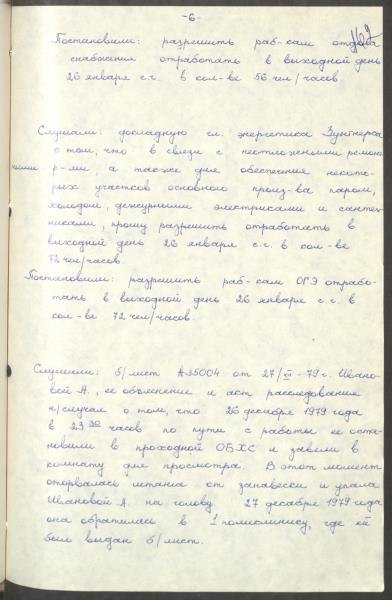 -6-
Постановили: разрешить раб-кам отдела
снабжения отработать в выходной день
26 января с.г. в кол-ве 56 чел/часов.
Слушали: докладную гл. энергетика
о том, что в связи с неотложными ремон
ными р-ми, а также для обеспечения некото-
рых участков основного произ-ва паром,
холодом, дежурными электриками и сантех-
никами, прошу разрешить отработать в
выходной день 26 января с.г. в кол-ве
72 чел/часов.
Постановили: разрешить раб-кам ОГЭ отрабо-
тать в выходной день 26 января с.г. в
кол-ве 72 чел/часов.
Слушали: б/лист А-35004 от 27/XII-79г. Ивано-
вой А., её объяснение и акт расследования
н/случая о том, что 26 декабря 1979 года
в 23 30 часов по пути с работы её оста-
новили в проходной ОБХС и завели в
комнату для просмотра. В этот момент
оторвалась штанга от занавески и упала
Ивановой А. на голову. 27 декабря 1979 года
она обратилась в 1 поликлинику, где ей
был выдан б/лист.